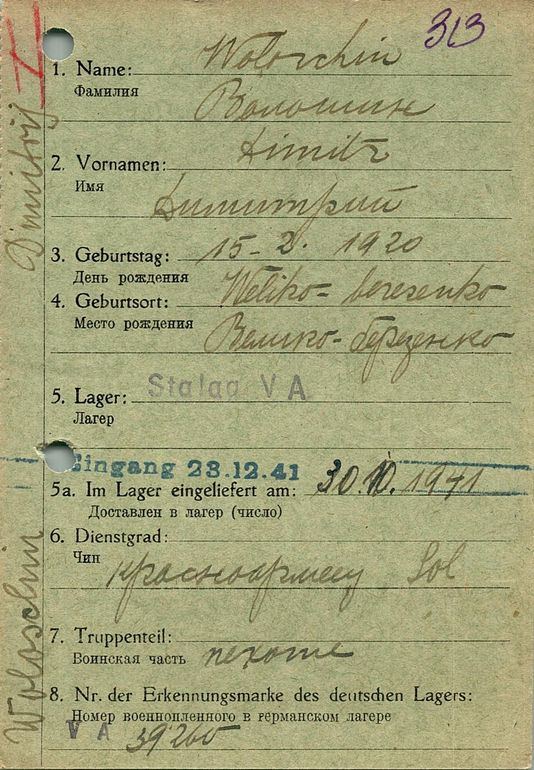 313
1. Name: Woloschin
Фамилия
Волошин
2. Vornamen: Dimitr
Имя
Димитрий
3. Geburtstag: 15-2. 1920
День рождения
4. Geburtsort: Weliko-beresenko
Место рождения
Велико-березенко
5. Lager: Stalag V A
Лагер
Eingang 23.12.41
5a. Im Lager eingeliefert am: 30.10.1941
Доставлен в лагер (число)
6. Dienstgrad:
Чин
красноармеец Sol
7. Truppenteil:
Воинская часть пехоте
8. Nr. der Erkennungsmarke des deutschen Lagers:
Номер военнопленного в германском лагере
V A 39260
Woloschin Dmitrij